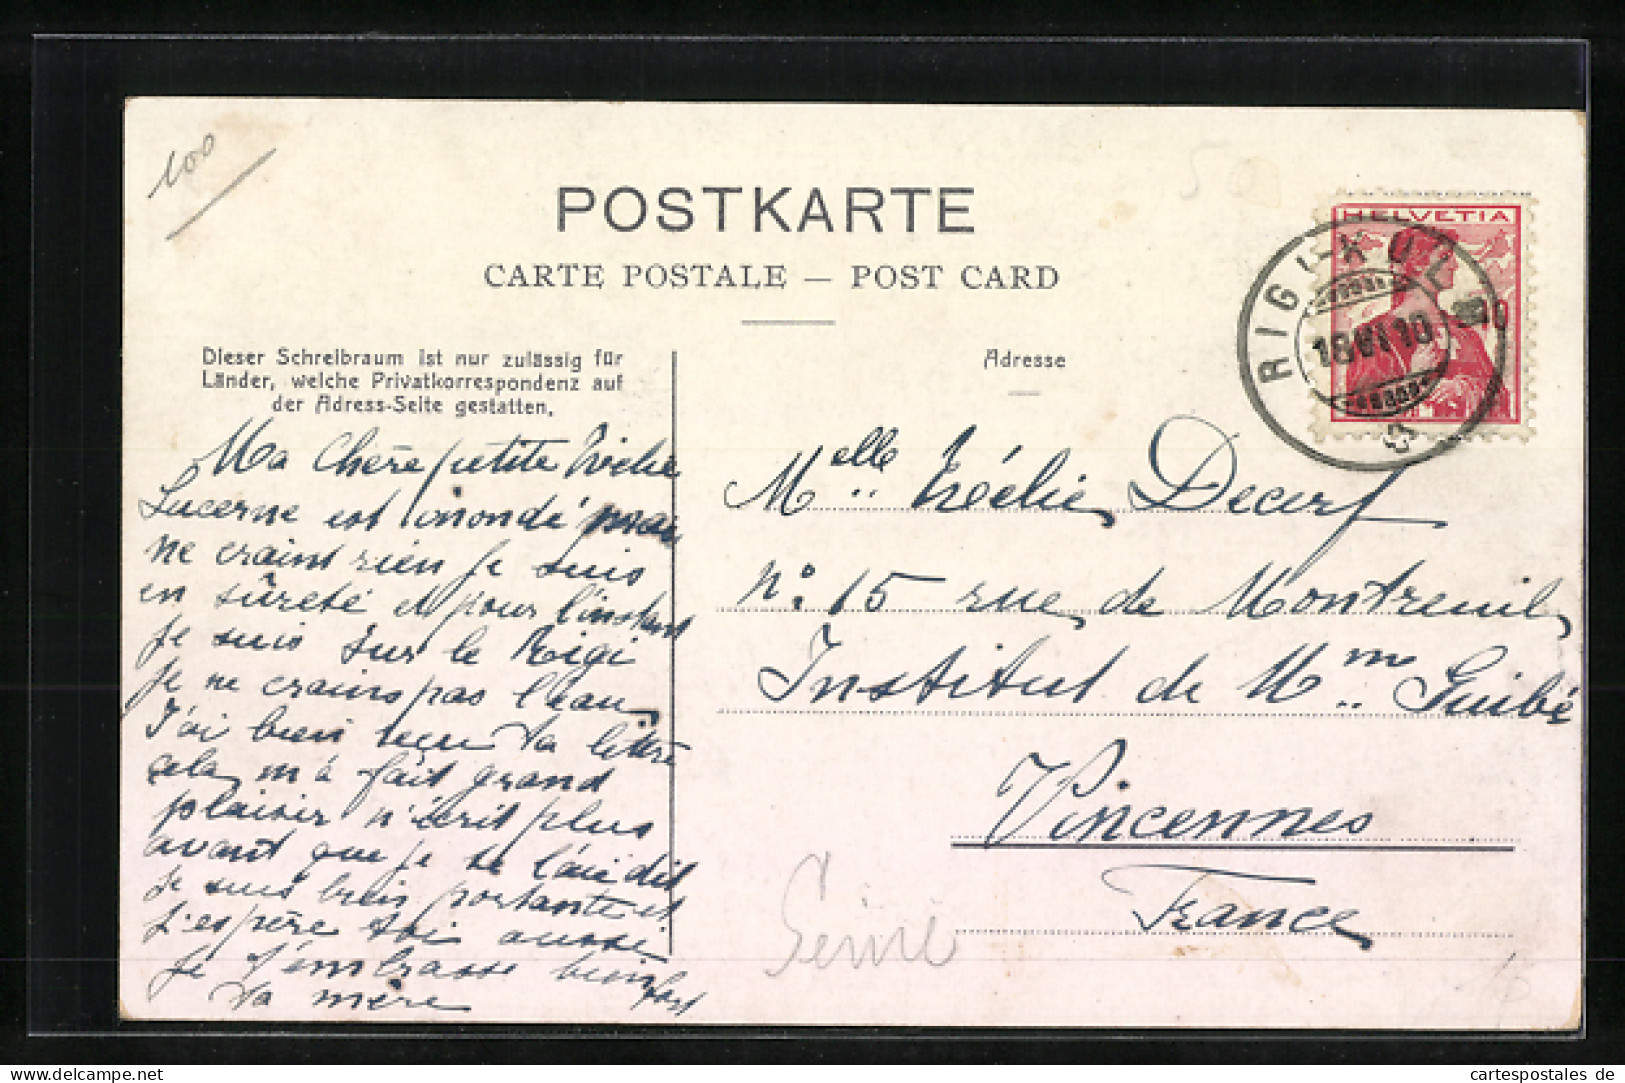 100
POSTKARTE
CARTE POSTALE — POST CARD
Dieser Schreibraum ist nur zulässig für
Länder, welche Privatkorrespondenz auf
der Adress-Seite gestatten.
Adresse
HELVETIA
10
RIGI-KULM
18 VI 10
Ma Chère petite
Lucerne est inondé mais
ne craint rien je suis
en sûreté et pour l'instant
je suis sur le Rigi
je ne crains pas l'eau
J'ai bien reçu ta lettre
cela m'a fait grand
plaisir n'écrit plus
avant que je te l'aie dit
je suis bien portante et
j'espère toi aussi
Je t'embrasse bien fort
ta mère
Melle Decerf
No. 15 rue de Montreuil
Institut de Mme Guibé
Vincennes
France
Seine
cartespostales de